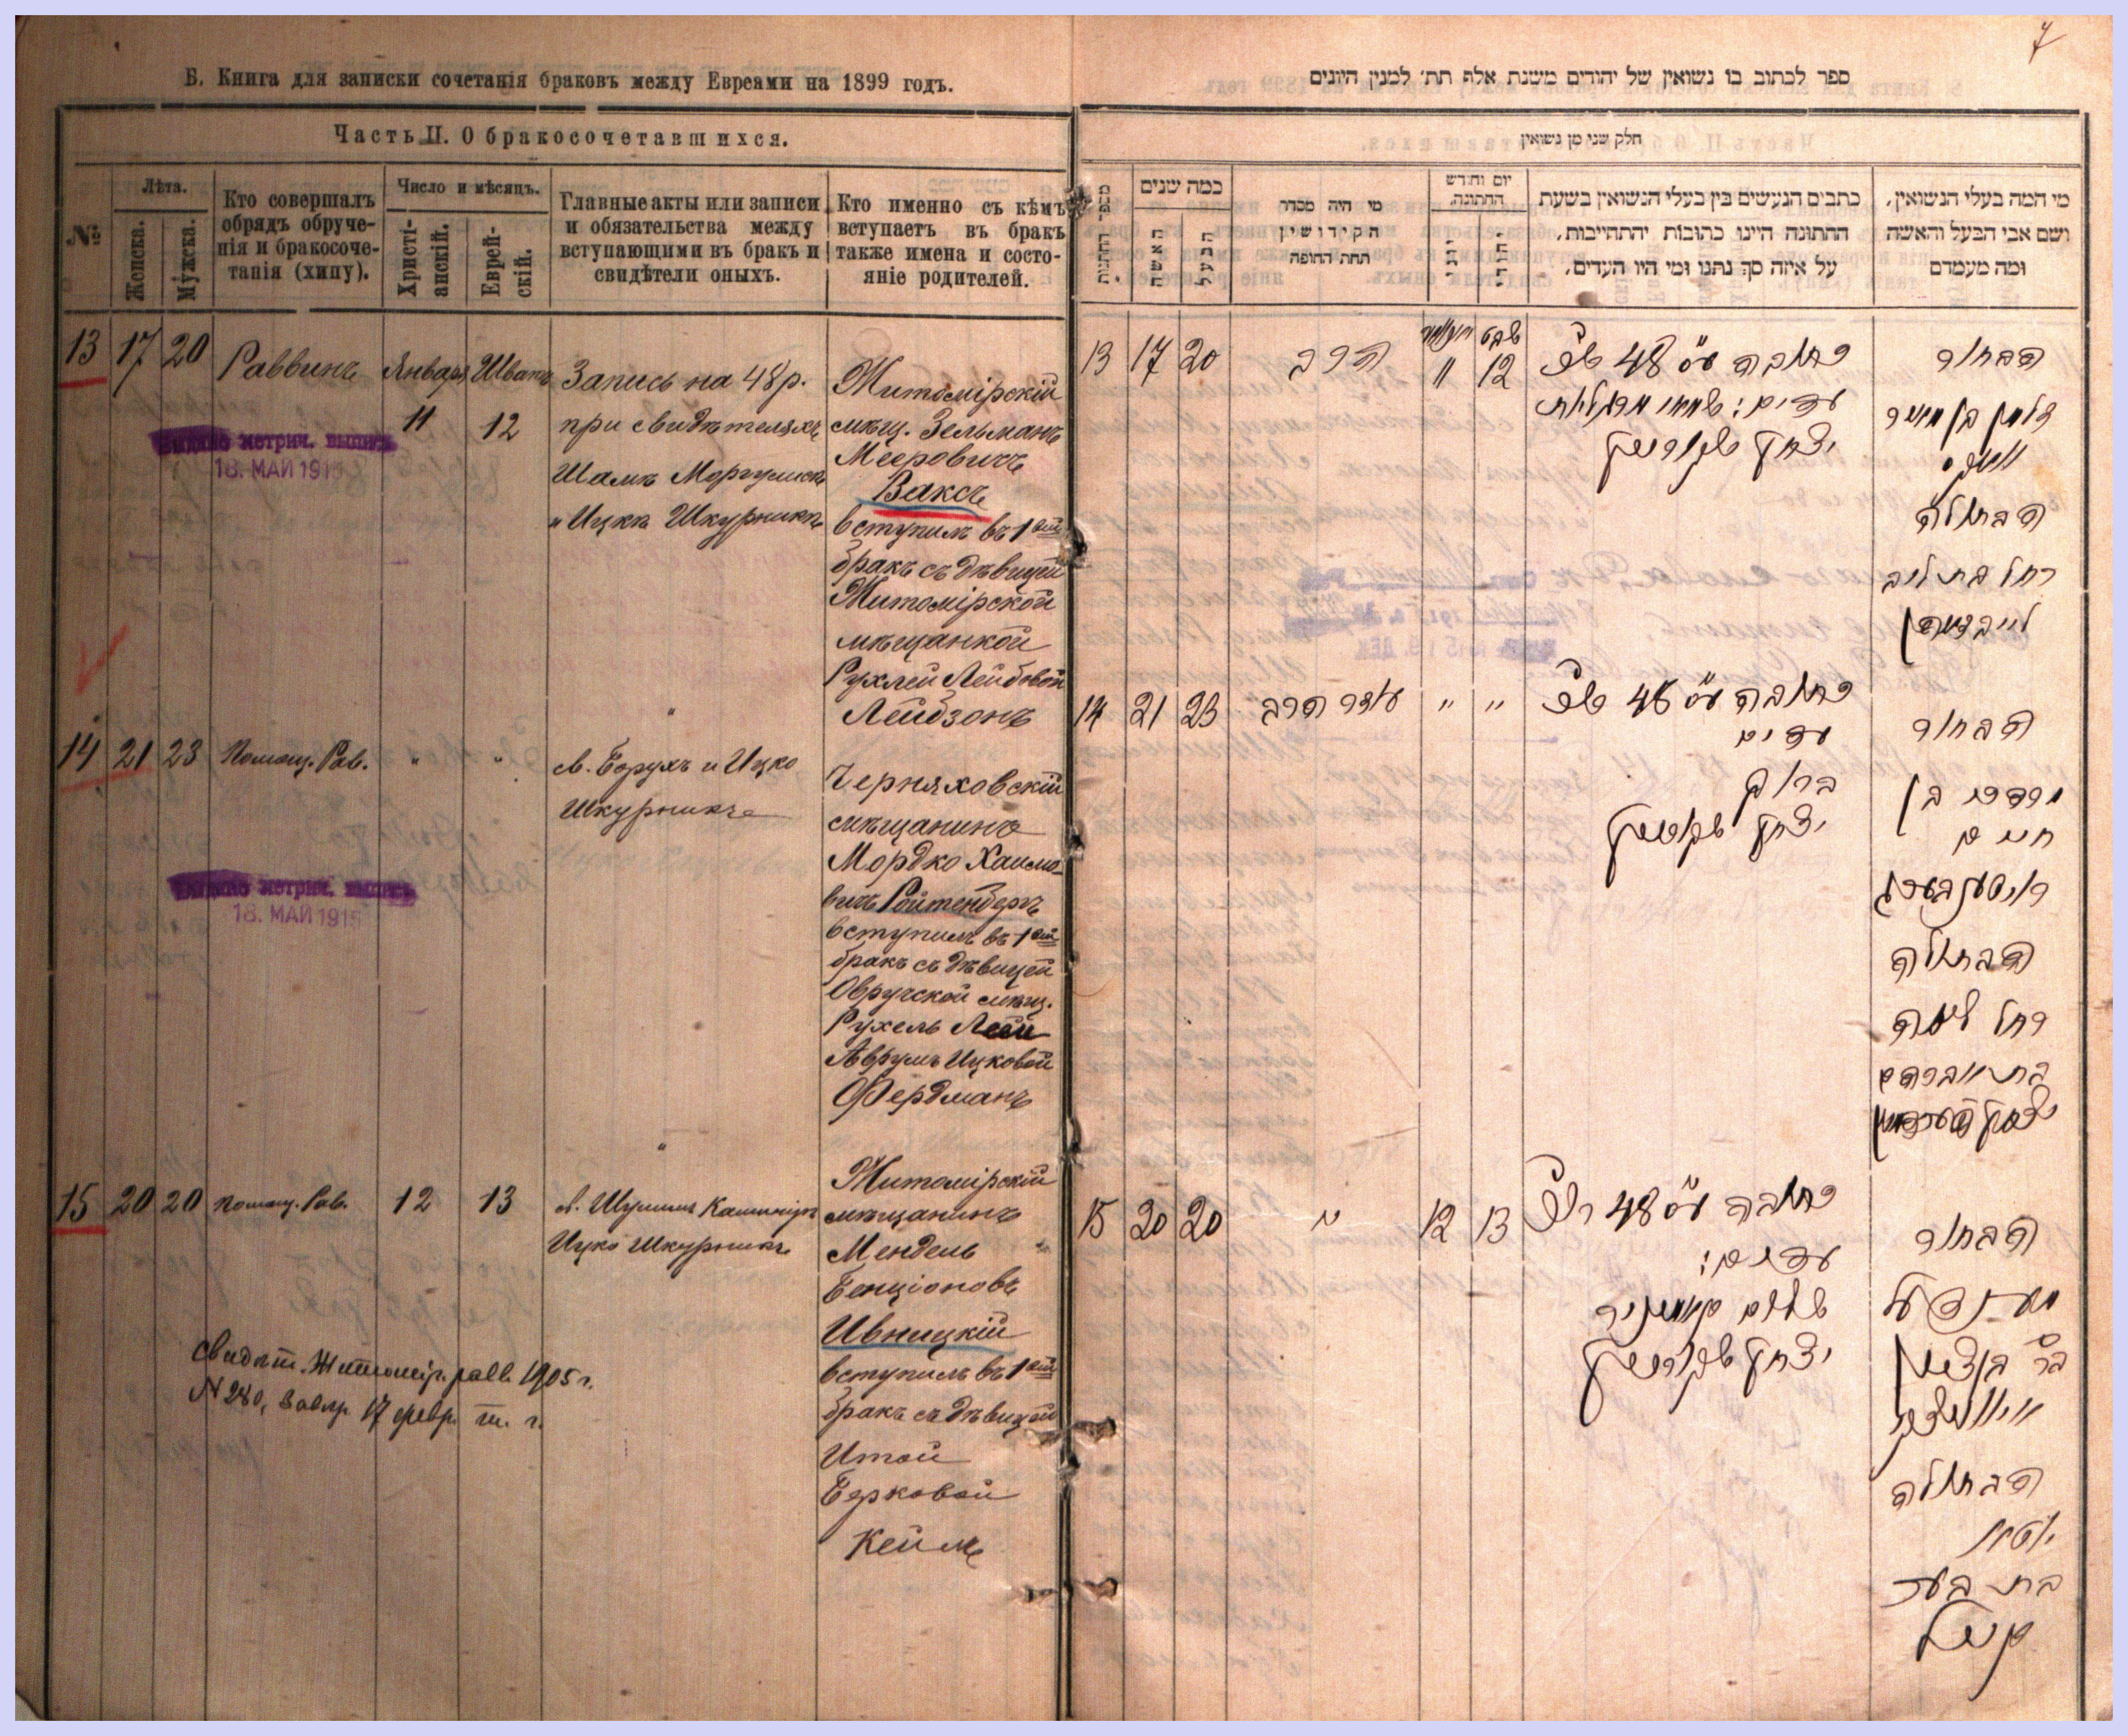 7
Б. Книга для записки сочетанія браковъ между Евреями на 1899 годъ.
Часть II. О бракосочетавшихся.
№
Лѣта.
Женска.
Мужска.
Кто совершалъ
обрядъ обруче-
нія и бракосоче-
танія (хипу).
Число и мѣсяцъ.
Христі-
анскій.
Еврей-
скій.
Главные акты или записи
и обязательства между
вступающими въ бракъ и
свидѣтели оныхъ.
Кто именно съ кѣмъ
вступаетъ въ бракъ
также имена и состо-
яніе родителей.
13 17 20 Раввинъ Января 11 Шватъ 12
Запись на 48 р.
при свидѣтеляхъ
Шамъ Моргулисъ
и Ицка Шкурникъ
Житомірскій
мѣщ. Зельманъ
Мееровичъ
Ваксъ
вступилъ въ 1ый
бракъ съ дѣвицей
Житомірской
мѣщанкой
Рухлей Лейбовой
Лейбзонъ
метрич. выпись
18. МАЙ 1915
14 21 23 Помощ. Рав. " "
св. Борухъ и Ицко
Шкурникъ
Черняховскій
мѣщанинъ
Мордко Хаимо-
вичъ Ройтенбергъ
вступилъ въ 1ый
бракъ съ дѣвицей
Овручской мѣщ.
Рухель Леей
Аврумъ Ицковой
Фердманъ
метрич. выпись
18. МАЙ 1915
15 20 20 Помощ. Рав. 12 13
Ицко Шкурникъ
Житомірскій
мѣщанинъ
Мендель
Бенціоновъ
Ивницкій
вступилъ въ 1ый
бракъ съ дѣвицей
Итой
Берковой
Кейлъ
Свидѣт. Житомір. равв. 1905 г.
N 280, 17 февр. т. г.
ספר לכתוב בו נשואין של יהודים משנת אלף תת׳ למנין היונים
חלק שני מן נשואין
מספר החתנות
כמה שנים
האשה
הבעל
מי היה מסדר
הקידושין
תחת החופה
יום וחדש
החתונה.
יוני
יהודי
כתבים הנעשים בין בעלי הנשואין בשעת
החתונה היינו כתובות והתחייבות,
על איזה סך נתנו ומי היו העדים.
מי המה בעלי הנשואין,
ושם אבי הבעל והאשה
ומה מעמדם
13 17 20 הרב 11 שבט 12
כתובה ע״ס 48
עדים:
יצחק שקורניק
הבחור
זלמן בן מאיר
וואקס
הבתולה
רחל בת ליב
לייבזאהן
14 21 23 עוזר הרב " "
כתובה ע״ס 48
עדים
ברוך
יצחק שקורניק
הבחור
מרדכי בן
חיים
רויטענבערג
הבתולה
רחל לאה
בת אברהם
יצחק פערדמאן
15 20 20 " 12 13
כתובה ע״ס 48
עדים:
יצחק שקורניק
הבחור
מענדל
בר בן ציון
הבתולה
בת בער